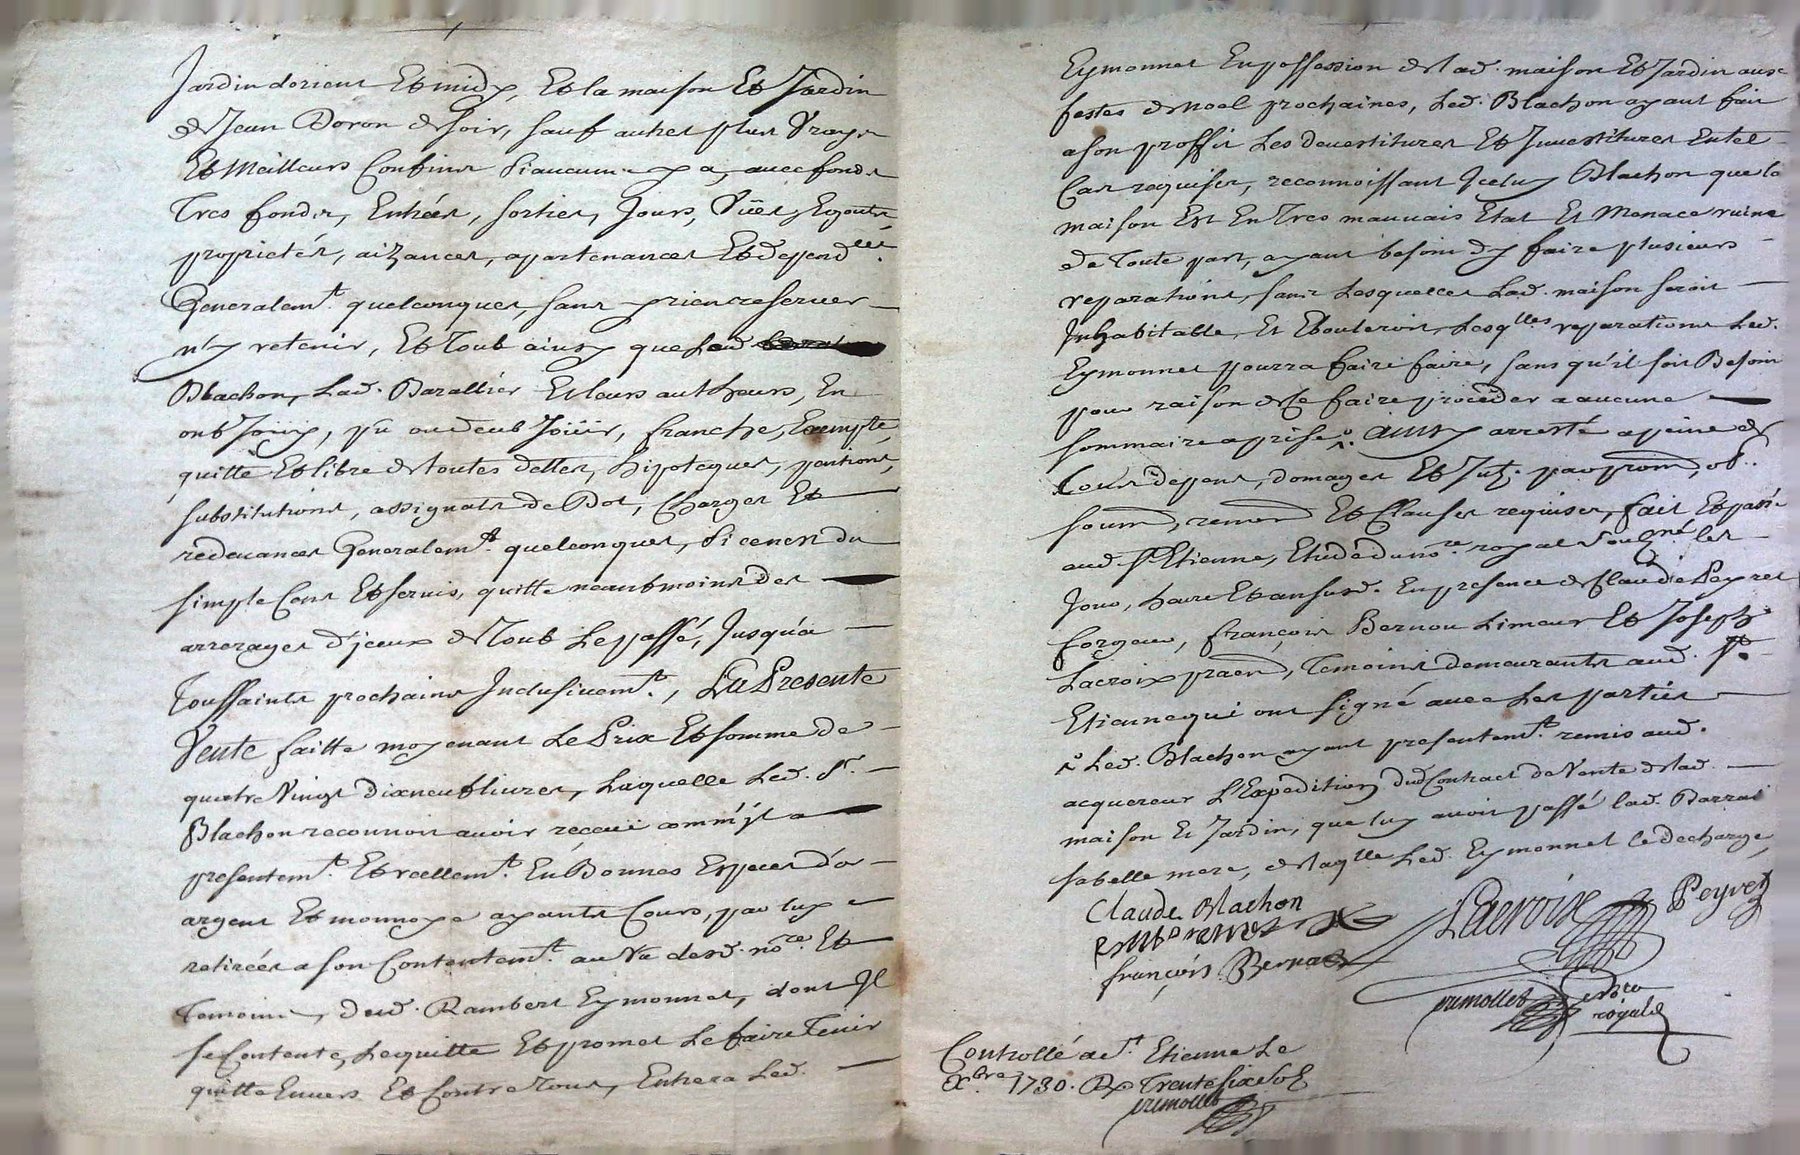 Jardin dorient Et midy, Et la maison Et Jardin
de Jean Doron de soir, sauf autres plus Vrays
Et Meilleurs Confins si aucuns y a, avec fonds
Tres fonds, Entrées, sorties, Jours, Vües, Egouts,
proprietés, aizances, apartenances Et depend.ces
Generalem.t quelconques, sans y rien reserver
n'y retenir, Et Tout ainsy que Led.
Blachon, Lad. Barallier Et leurs autheurs, En
ont Joüy, pû ou deub Joüir, franche, Exempte,
quitte Et libre de toutes dettes, hipoteques, pentions,
substitutions, assignats de Dot, Charges Et
redevances Generalem.t quelconques, si ce n'est du
simple Cens Et servis, quitte neantmoins des
arrerages d'jceux de Tout Le passé, Jusqu'a
Toussaints prochains Jnclusivem.t, La Presente
Vente faitte moyenant Le Prix Et somme de
quatre Vingt dixneuf livres, Laquelle Led. S.r
Blachon reconnoit avoir receüe comm'jl a
presentem.t Et reellem.t En Bonnes Especes d'or
argent Et monnoye ayants Cours, par luy
retirées a son Contentem.t au Vû desd. no.re Et
Temoins, dud. Rambert Eymonnet, dont Jl
se Contente, Le quitte Et promet Le faire Tenir
quitte Envers Et Contre Tous, Entrera Led.
Eymonnet En possession de lad. maison Et Jardin aux
festes de Noel prochaines, Led. Blachon ayant fait
a son proffit Les devestitures Et Jnvestitures En tel
Cas requises, reconnoissant Jceluy Blachon que la
maison Est En Tres mauvais Etat Et Menace ruine
de Toute part, ayant besoin d'y faire plusieurs
reparations, sans Lesquelles Lad. maison seroit
Jnhabitable, Et Ebouleroit, Lesq.lles reparations Led.
Eymonnet pourra faire faire, sans qu'il soit Besoin
pour raison de Ce faire proceder a aucune
sommaire aprise, ainsy arresté a peine de
Tous depens, domages Et Jnt. par prom, ob.
soum, renon Et Clauses requises, fait Et passé
aud. S.t Etienne, Etude du no.re royal sousigné les
Jour, heure Et an susd. En presence de Claude Peyret
forgeur, françois Bernou Limeur Et Joseph
Lacroix praen, Temoins demeurants aud. S.t
Etienne qui ont signé avec Les parties
Led. Blachon ayant presentem.t remis aud.
acquereur L'Expedition dud. Contract de Vente de lad.
maison Et Jardin, que luy avoit passé lad. Barralier
sa belle mere, de laq.lle Led. Eymonnet le decharge,
Claude Blachon
Lacroix Peyret
françois Bernou
no.re
royal
Controllé a S.t Etienne Le
Xbre 1730. R Trente six sols